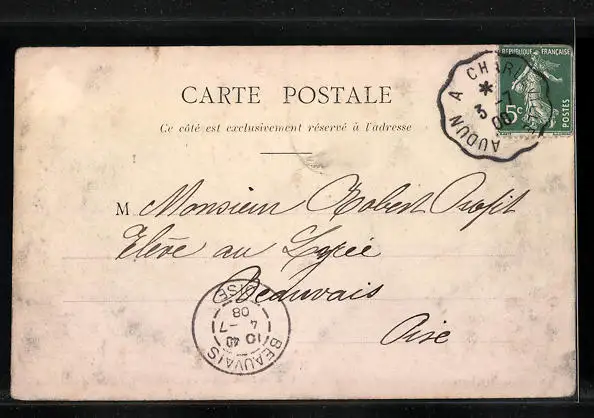 REPUBLIQUE FRANÇAISE
5c
POSTES
AUDUN A
3 -7
08
CARTE POSTALE
Ce côté est exclusivement réservé à l'adresse
M Monsieur Robert Profit
Elève au Lycée
Beauvais
Oise
BEAUVAIS
OISE
10 40
4 -7
08